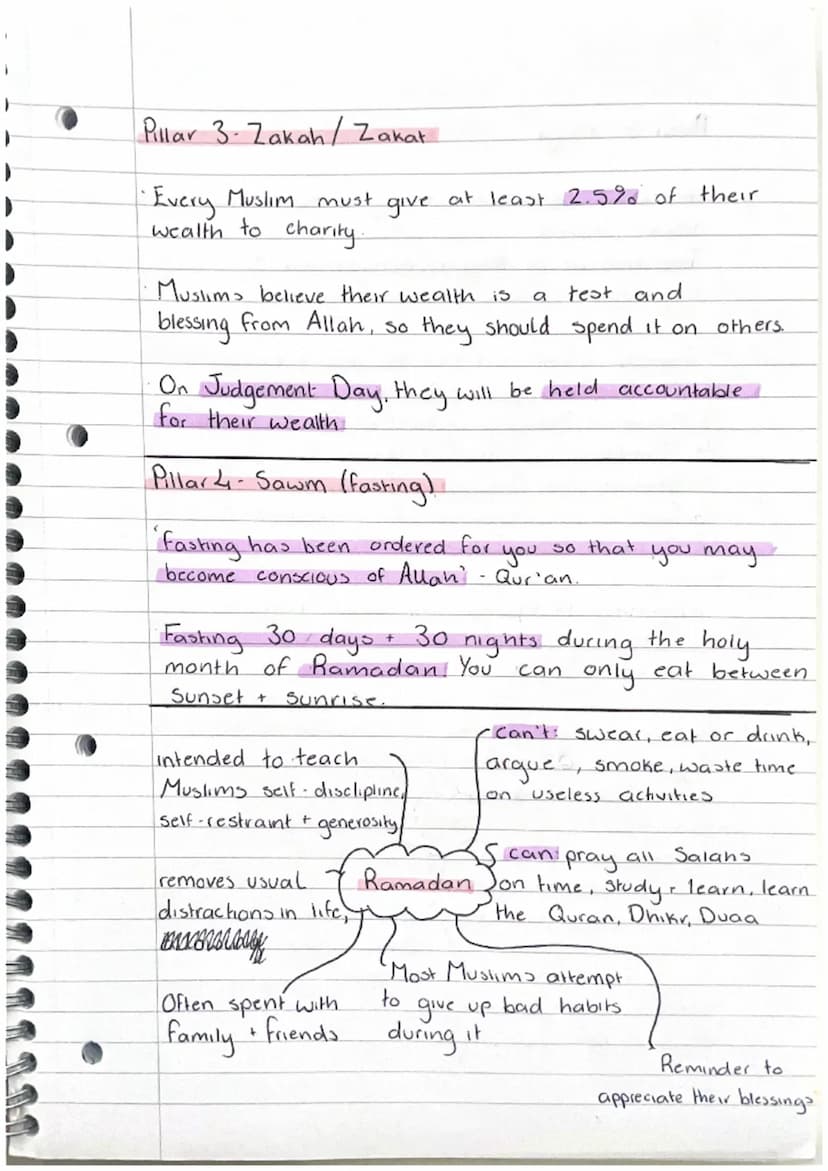 Pillar 3 - Zakah / Zakat
· Every Muslim must give at least 2.5% of their
wealth to charity.
· Muslims believe their wealth is a test and
blessing from Allah, so they should spend it on others.
· On Judgement Day, they will be held accountable
for their wealth
Pillar 4 - Sawm (fasting)
'Fasting has been ordered for you so that you may
become conscious of Allah' - Qur'an.
Fasting 30 days + 30 nights during the holy
month of Ramadan! You can only eat between
Sunset + sunrise.
intended to teach
Muslims self-discipline,
self-restraint + generosity
can't: swear, eat or drink,
argue, smoke, waste time
on useless activities
removes usual
distractions in life,
Ramadan
can: pray all Salahs
on time, study + learn, learn
the Quran, Dhikr, Duaa
Often spent with
family + friends
Most Muslims attempt
to give up bad habits
during it
Reminder to
appreciate their blessings